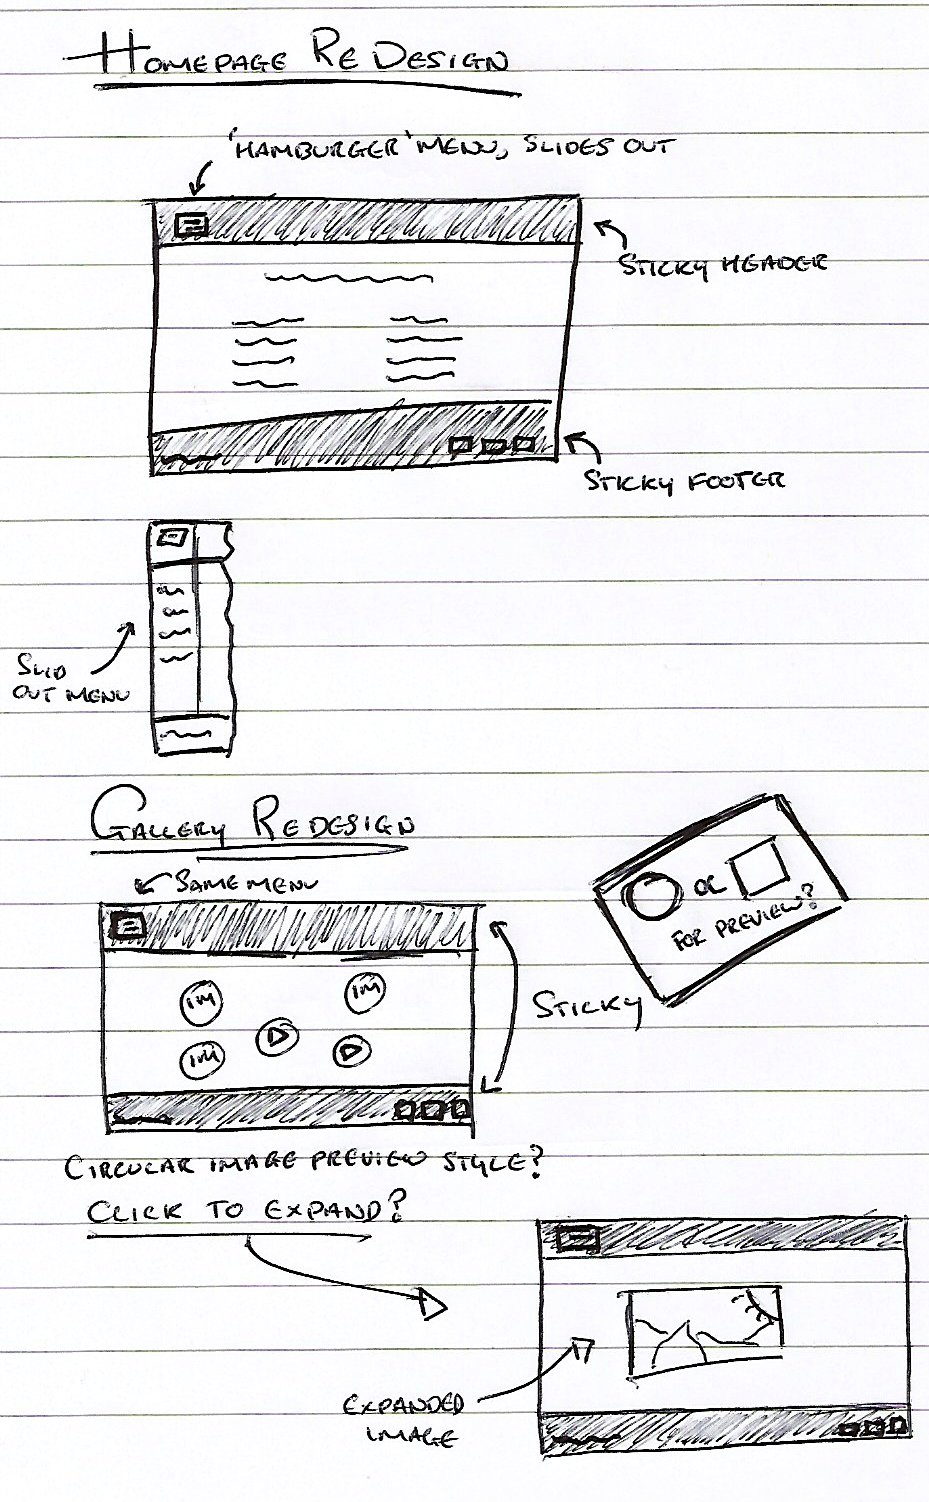 HOMEPAGE REDESIGN
'HAMBURGER' MENU, SLIDES OUT
STICKY HEADER
STICKY FOOTER
SLID
OUT MENU
GALLERY REDESIGN
SAME MENU
OR
FOR PREVIEW?
IM
IM
IM
STICKY
CIRCULAR IMAGE PREVIEW STYLE?
CLICK TO EXPAND?
EXPANDED
IMAGE